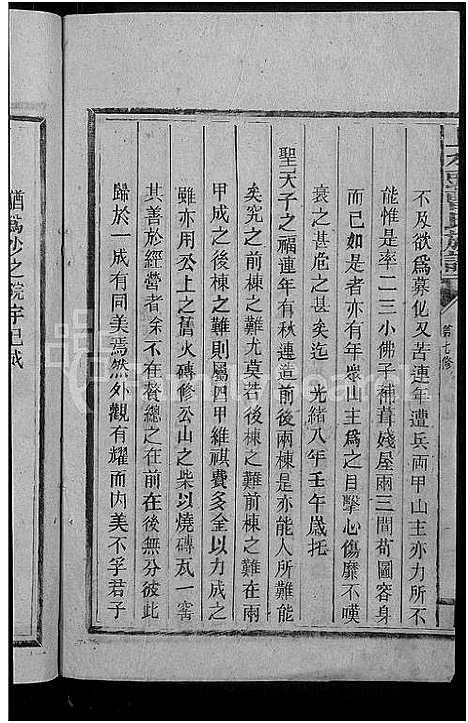 不及欲爲募化又苦連年遭兵兩甲山主亦力所不
能惟是率一二三小佛子補葺殘屋兩三間苟圖容身
而已如是者亦有年衆山主爲之目擊心傷靡不嘆
衰之甚危之甚矣迄 光緒八年壬午歲托
聖天子之福連年有秋連造前後兩棟是亦能人所難能
矣究之前棟之難尤莫若後棟之難前棟之難在兩
甲成之後棟之難則屬四甲維祺費多金以力成之
雖亦用公上之舊火磚修公山之柴以燒磚瓦一窰
其善於經營者余不在贅總之在前在後無分彼此
歸於一成有同美焉然外觀有耀而内美不孚君子
猶爲沙之院宇已哉
氏族譜
七修